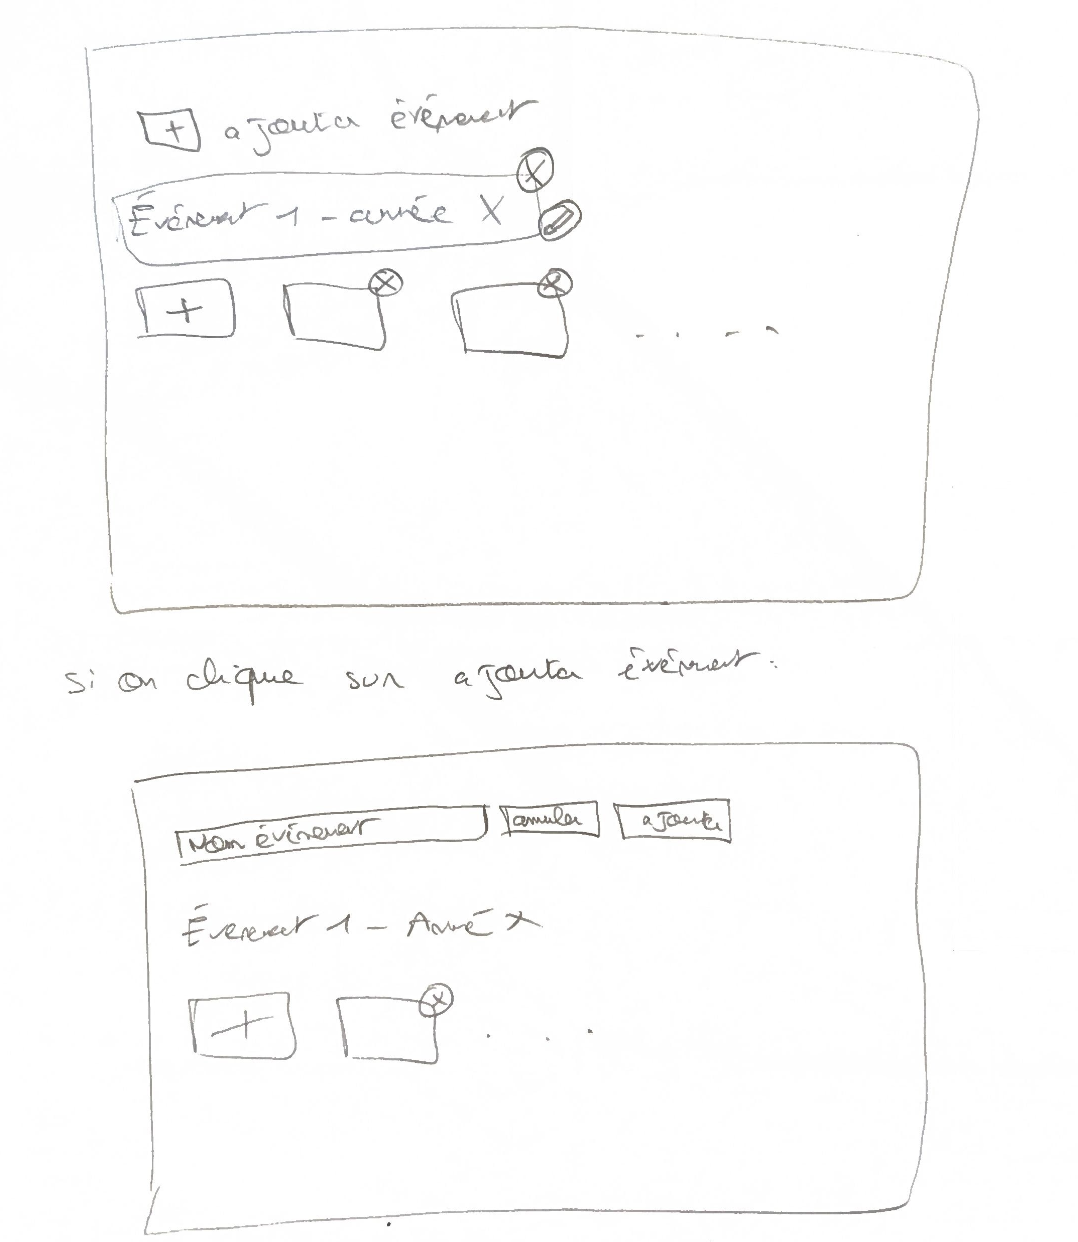 + ajouter événement
Événement 1 - année X
+
si on clique sur ajouter événement.
Nom événement annuler ajouter
Événement 1 - Année X
+